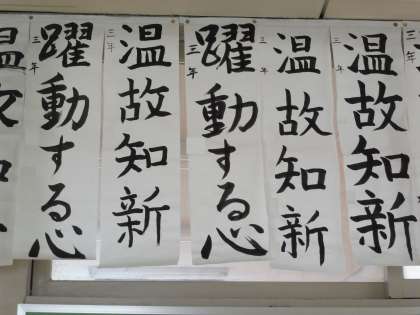 三年
温故知新
三
温故知新
三
躍動する心
三年
温故知新
三年
躍動する心
三年
温故知